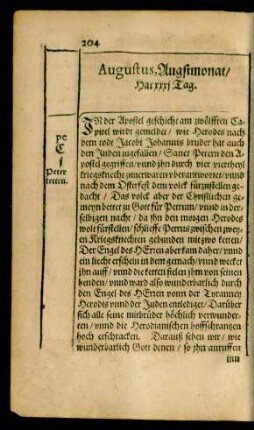 204
Augustus, Augstmonat/
Hat xxxj Tag.
pe
C
f
Peter
ketten.
IN der Apostel geschicht am zwölfften Ca-
pitel wirdt gemeldet/ wie Herodes nach
dem todt Jacobi Johannis bruder hat auch
den Juden zugefallen/ Sanct Petern den A-
postel gegriffen/ vnnd jhn durch vier viertheyl
kriegsknecht zuuerwaren vberantwortet/ vnnd
nach dem Osterfest dem volck fürzustellen ge-
dacht/ Das volck aber der Christlichen ge-
meyn bettet zu Gott für Petrum/ vnnd in der-
selbigen nacht/ da jhn den morgen Herodes
wolt fürstellen/ schlieffe Petrus zwischen zwey-
en Kriegsknechten gebunden mit zwo ketten/
Der Engel des HErren aber kam daher/ vnnd
ein liecht erschein in dem gemach/ vnnd wecket
jhn auff/ vnnd die ketten fielen jhm von seinen
henden/ vnnd ward also wunderbarlich durch
den Engel des HErren vonn der Tyranney
Herodis vnnd der Juden entlediget/ Darüber
sich alle seine mitbrüder höchlich verwunder-
ten/ vnnd die Herodianischen hoffschrantzen
hoch erschracken. Darauß sehen wir/ wie
wunderbarlich Gott denen/ so jhn anruffen